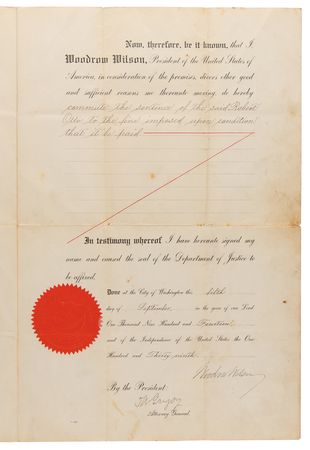 Now, therefore, be it known, that I
Woodrow Wilson, President of the United States of
America, in consideration of the premises, divers other good
and sufficient reasons me thereunto moving, do hereby
commute the sentence of the said Robert
Otto to the fine imposed upon condition
that it be paid
In testimony whereof I have hereunto signed my
name and caused the seal of the Department of Justice to
be affixed.
Done at the City of Washington this
day of September in the year of our Lord
One Thousand Nine Hundred and Fourteen
and of the Independence of the United States the One
Hundred and Thirty-ninth.
Woodrow Wilson
By the President:
T W Gregory
Attorney General.